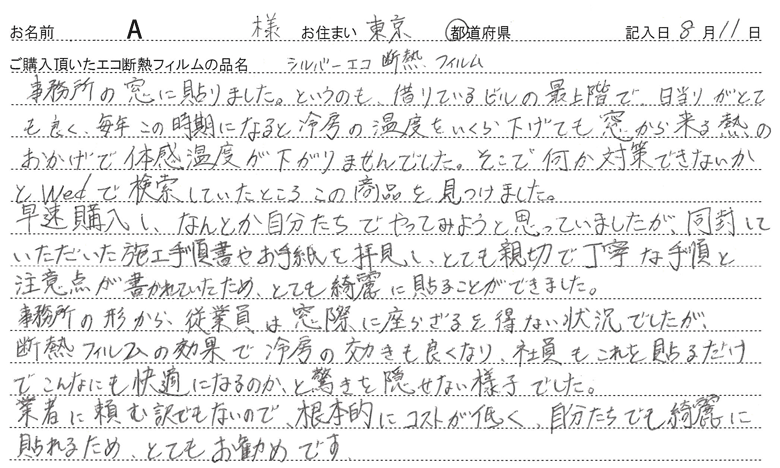 お名前 A 様 お住まい 東京 都道府県 記入日 8 月 11 日
ご購入頂いたエコ断熱フィルムの品名 シルバーエコ断熱フィルム
事務所の窓に貼りました。というのも、借りているビルの最上階で、日当りがとて
も良く、毎年この時期になると冷房の温度をいくら下げても窓から来る熱の
おかげで体感温度が下がりませんでした。そこで何か対策できないか
とWedで検索していたところこの商品を見つけました。
早速購入し、なんとか自分たちでやってみようと思っていましたが、同封して
いただいた施工手順書やお手紙を拝見し、とても親切で丁寧な手順と
注意点が書かれていたため、とても綺麗に貼ることができました。
事務所の形から、従業員は窓際に座らざるを得ない状況でしたが、
断熱フィルムの効果で冷房の効きも良くなり、社員もこれを貼るだけ
でこんなにも快適になるのか、と驚きを隠せない様子でした。
業者に頼む訳でもないので、根本的にコストが低く、自分たちでも綺麗に
貼れるため、とてもお勧めです。